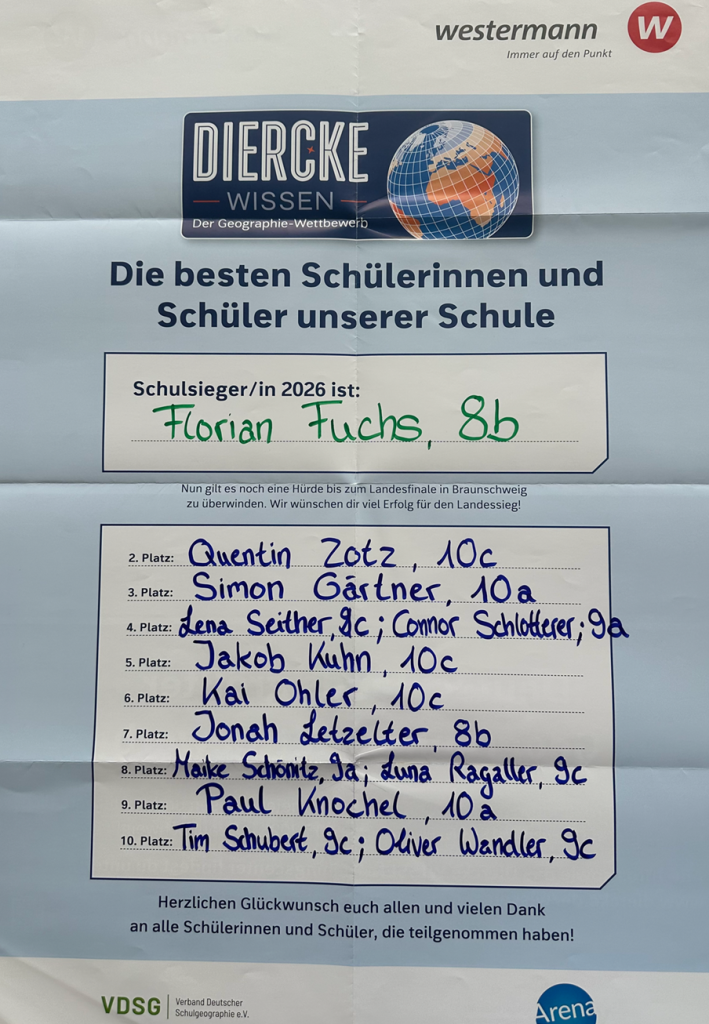 westermann W
Immer auf den Punkt
DIERCKE
WISSEN
Der Geographie-Wettbewerb
Die besten Schülerinnen und
Schüler unserer Schule
Schulsieger/in 2026 ist:
Florian Fuchs, 8b
Nun gilt es noch eine Hürde bis zum Landesfinale in Braunschweig
zu überwinden. Wir wünschen dir viel Erfolg für den Landessieg!
2. Platz: Quentin Zotz, 10c
3. Platz: Simon Gärtner, 10a
4. Platz: Lena Seither, 9c; Connor Schlotterer; 9a
5. Platz: Jakob Kuhn, 10c
6. Platz: Kai Ohler, 10c
7. Platz: Jonah Letzelter, 8b
8. Platz: Maike Schönitz, 9a; Luna Ragaller, 9c
9. Platz: Paul Knochel, 10a
10. Platz: Tim Schubert, 9c; Oliver Wandler, 9c
Herzlichen Glückwunsch euch allen und vielen Dank
an alle Schülerinnen und Schüler, die teilgenommen haben!
VDSG Verband Deutscher
Schulgeographie e.V.
Arena